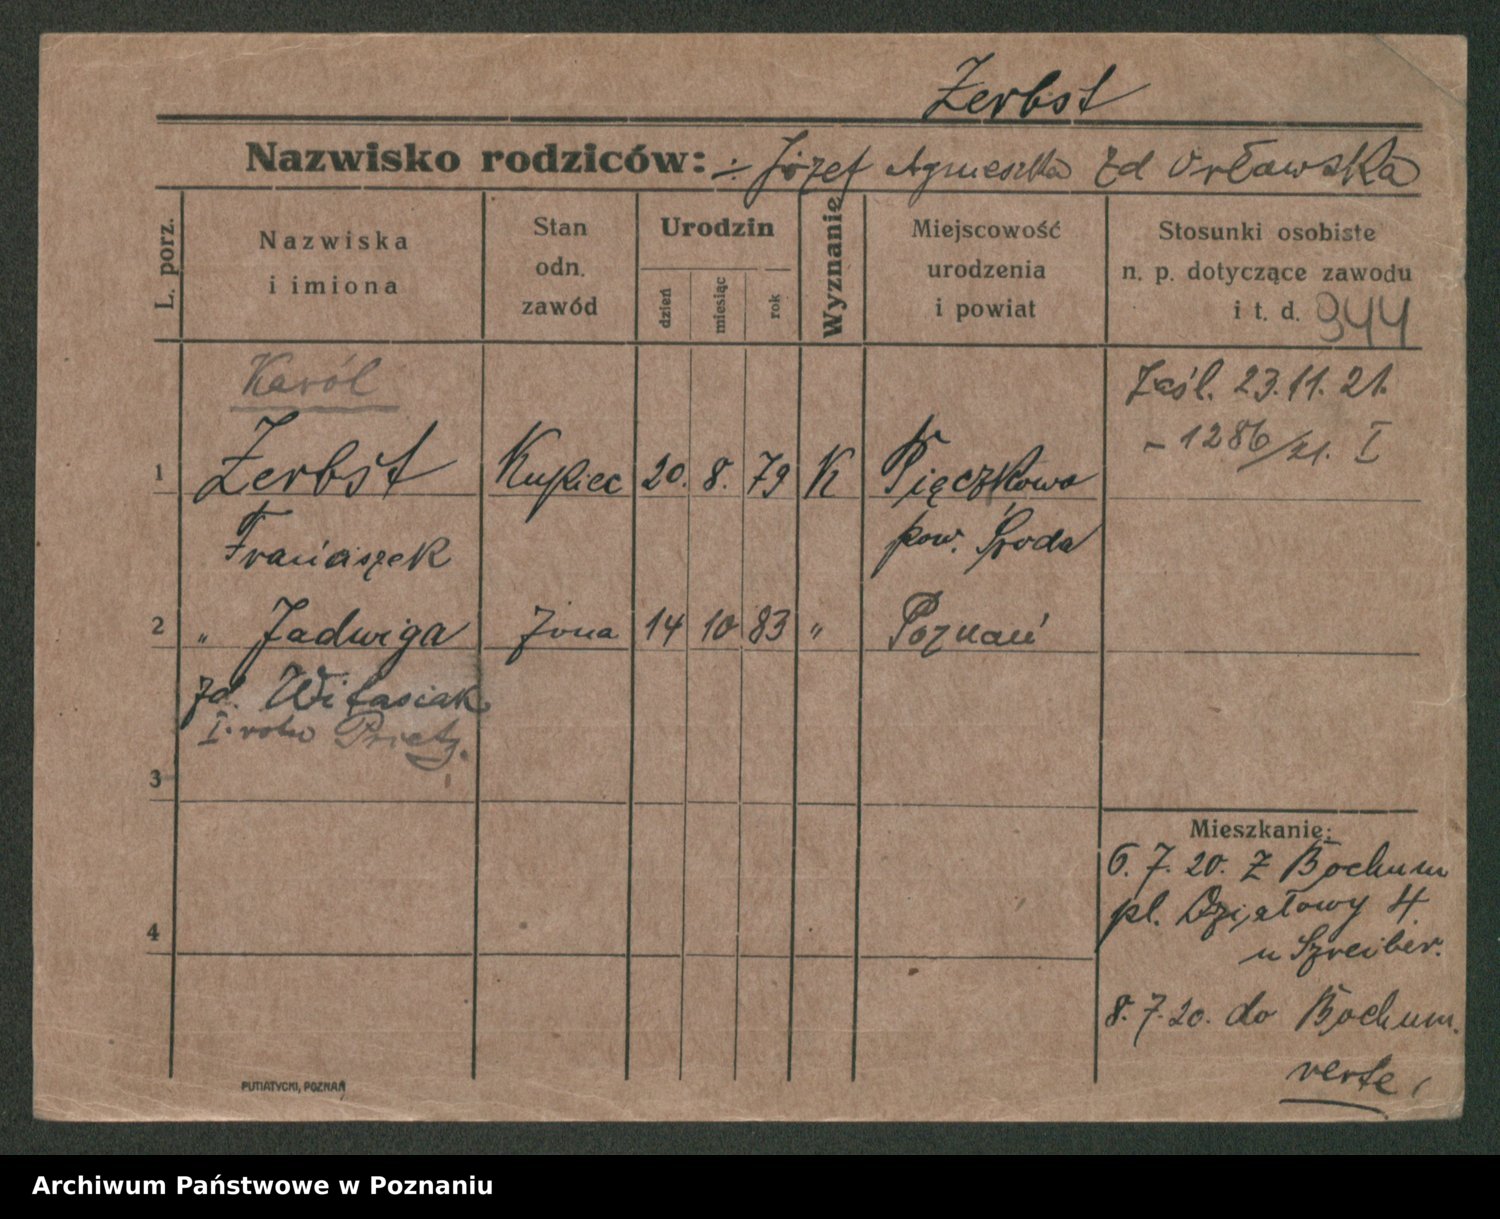 Zerbst
Nazwisko rodziców: Józef Agnieszka zd Orławska
L. porz.
Nazwiska
i imiona
Stan
odn.
zawód
Urodzin
dzień
miesiąc
rok
Wyznanie
Miejscowość
urodzenia
i powiat
Stosunki osobiste
n. p. dotyczące zawodu
i t. d. 944
Karól
Zaśl. 23.11.21.
– 1286/21. I
1 Zerbst Kupiec 20. 8. 79 K Pięczkowo
Franciszek pow. Środa
2 „ Jadwiga żona 14 10 83 „ Poznań
zd. Witasiak
I. voto Prietz.
3
4
Mieszkanie:
6. 7. 20. z Bochum
pl. Działowy 4.
u Szreiber.
8. 7. 20. do Bochum.
verte
PUTIATYCKI, POZNAŃ
Archiwum Państwowe w Poznaniu